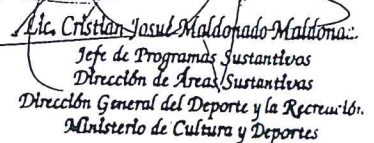 Lic. Cristian Josué Maldonado Maldona..
Jefe de Programas Sustantivos
Dirección de Áreas Sustantivas
Dirección General del Deporte y la Recreación.
Ministerio de Cultura y Deportes